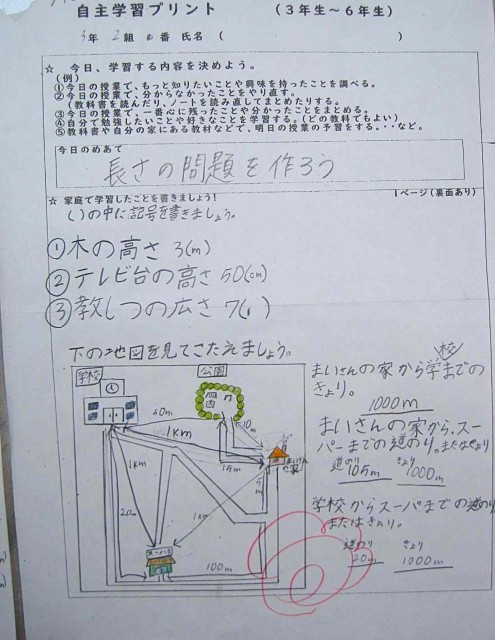 自主学習プリント (3年生～6年生)
3年 2組 番 氏名 ( )
☆ 今日、学習する内容を決めよう。
(例)
①今日の授業で、もっと知りたいことや興味を持ったことを調べる。
②今日の授業で、分からなかったことをやり直す。
(教科書を読んだり、ノートを読み直してまとめたりする。
③今日の授業で、一番心に残ったことや分かったことをまとめる。
④自分で勉強したいことや好きなことを学習する。(どの教科でもよい)
⑤教科書や自分の家にある教材などで、明日の授業の予習をする。・・など。
今日のめあて
長さの問題を作ろう
1ページ(裏面あり)
☆ 家庭で学習したことを書きましょう!
( )の中に記号を書きましょう。
①木の高さ 3(m)
②テレビ台の高さ 50(cm)
③教しつの広さ 7( )
下の地図を見てこたえましょう。
学校
公園
40m
1km
10m
15m
まいさんの家
5m
1km
20m
1km
スーパー
100m
まいさんの家から学校までの
きょり。
1000m
まいさんの家から、スー
パーまでの道のり。またはきょり
道のり きょり
105m 1000m
学校からスーパまでの道のり
またはきょり。
道のり きょり
20m 1000m